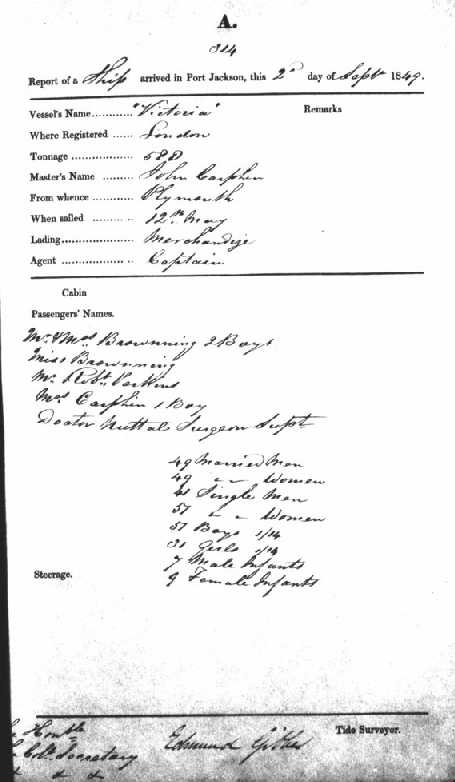 A.
314
Report of a Ship arrived in Port Jackson, this 2d day of Septr 1849.
Vessel's Name "Victoria" Remarks
Where Registered London
Tonnage 588
Master's Name John Carphin
From whence Plymouth
When sailed 12th May
Lading Merchandize
Agent Captain
Cabin
Passengers' Names.
Mr & Mrs Brownning 2 Boys
Miss Brownning
Mr Robt Perkins
Mrs Carphin 1 Boy
Doctor Nuttal Surgeon Supt
49 Married Men
49 " " Women
Single Men
57 " " Women
57 Boys 1/14
31 Girls 1/14
7 Male Infants
9 Female Infants
Steerage.
Honble
Secretary
Edmund
Tide Surveyor.